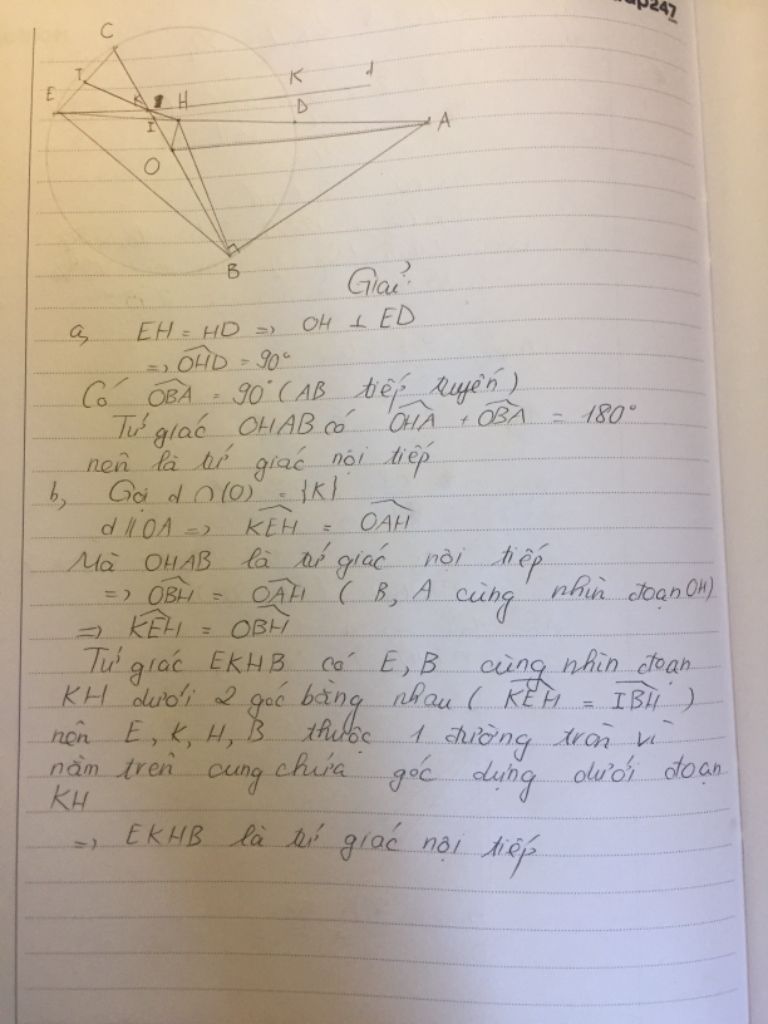 247
C
T
K
d
E
K
H
D
A
I
O
B
Giải:
a, EH = HD => OH ⊥ ED
=> \widehat{OHD} = 90°
Có \widehat{OBA} = 90° (AB tiếp tuyến)
Tứ giác OHAB có \widehat{OHA} + \widehat{OBA} = 180°
nên là tứ giác nội tiếp
b, Gọi d ∩ (O) = {K}
d // OA => \widehat{KEH} = \widehat{OAH}
Mà OHAB là tứ giác nội tiếp
=> \widehat{OBH} = \widehat{OAH} ( B, A cùng nhìn đoạn OH)
=> \widehat{KEH} = \widehat{OBH}
Tứ giác EKHB có E, B cùng nhìn đoạn
KH dưới 2 góc bằng nhau ( \widehat{KEH} = \widehat{IBH} )
nên E, K, H, B thuộc 1 đường tròn vì
nằm trên cung chứa góc dựng dưới đoạn
KH
=> EKHB là tứ giác nội tiếp